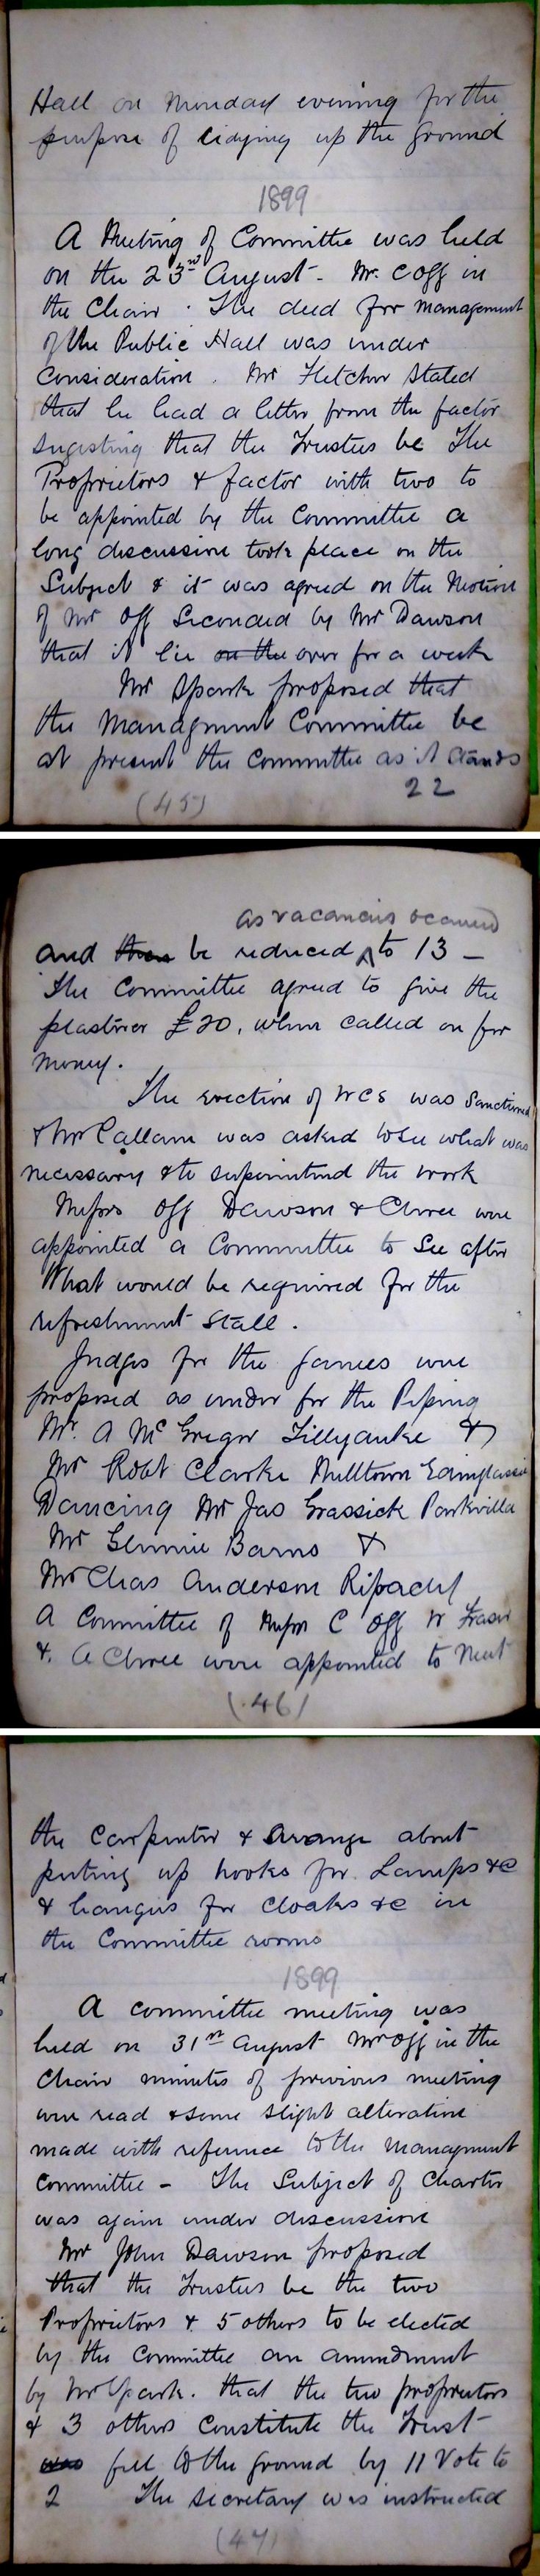 Hall on Monday evening for the
purpose of tidying up the ground
1899
A Meeting of Committee was held
on the 23rd August - Mr. C Off in
the Chair . The deed for management
of the Public Hall was under
Consideration . Mr Fletcher stated
that he had a letter from the factor
sugesting that the Trustees be The
Proprietors & factor with two to
be appointed by the Committee a
long discussion took place on the
Subject & it was agreed on the Motion
of Mr Off Seconded by Mr Dawson
that it lie on the over for a week
Mr Spark proposed that
the Managment Committee be
at present the Committee as it stands
22
(45)
as vacancies occurred
and then be reduced ^ to 13 -
The Committee agreed to give the
plasterer £20, when called on for
money.
The erection of WCs was Sanctioned
& Mr Callam was asked to see what was
necessary & to superintend the work
Messrs Off Dawson & Chree were
appointed a Committee to See after
What would be required for the
refreshment Stall .
Judges for the games were
proposed as under for the Piping
Mr. A McGregor Tillyduke &
Mr Robt Clarke Milltown Edinglassie
Dancing Mr Jas Grassick Parkvilla
Mr Glennie Barns &
Mr Chas Anderson Ripachy
A Committee of Messrs C Off W Fraser
& A Chree were appointed to Meet
(46)
the Carpenter & Arange about
puting up hooks for Lamps &c
& hangers for Cloaks &c in
the Committee rooms
1899
A committee meeting was
held on 31st August Mr Off in the
Chair minutes of previous meeting
were read & some slight alteration
made with reference to the Managment
Committee - The Subject of Charter
was again under discussion
Mr John Dawson proposed
that the Trustees be the two
Proprietors & 5 others to be elected
by the Committee an amendment
by Mr Spark. that the two proprietors
& 3 others Constitute the Trust
was fell to the ground by 11 Vote to
2 The Secretary was instructed
(47)